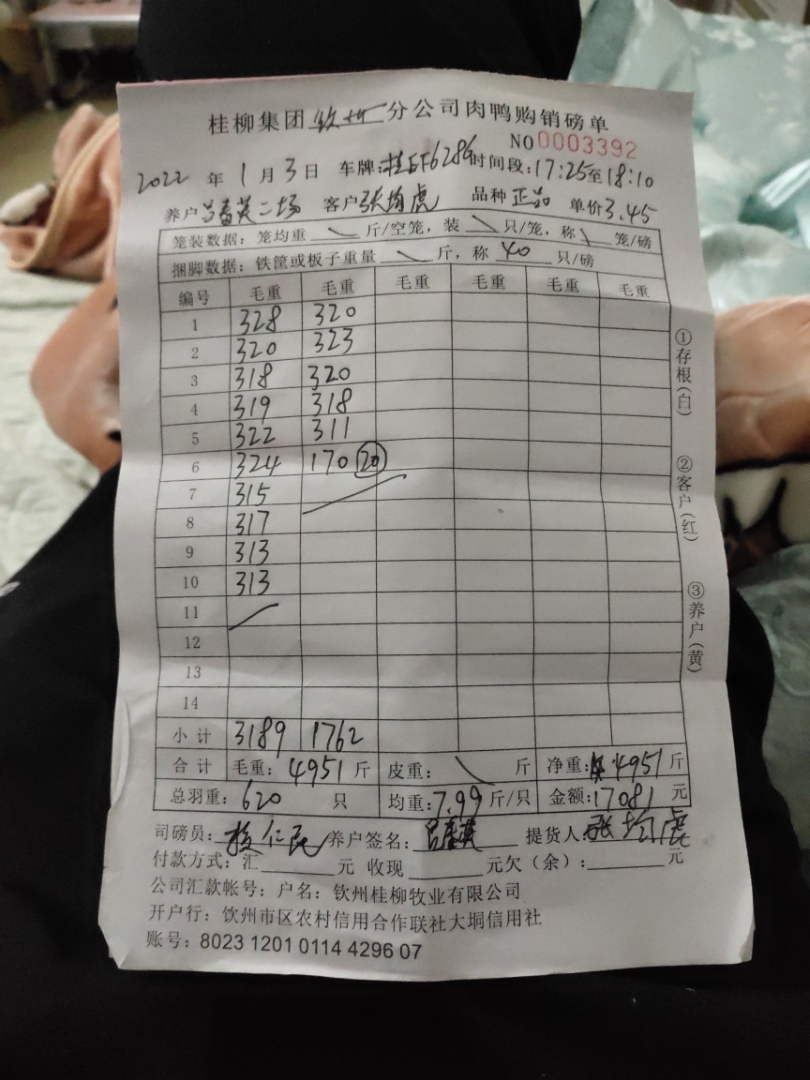 桂柳集团钦州分公司肉鸭购销磅单
NO 0003392
2022年1月3日 车牌:桂 6286 时间段:17:25至18:10
养户 吕春英二场 客户 张均虎 品种 正品 单价 3.45
笼装数据:笼均重 \ 斤/空笼,装 \ 只/笼,称 \ 笼/磅
捆脚数据:铁筐或板子重量 \ 斤,称 40 只/磅
编号 毛重 毛重 毛重 毛重 毛重 毛重
1 328 320
2 320 323
3 318 320
4 319 318
5 322 311
6 324 170 20
7 315
8 317
9 313
10 313
11
12
13
14
小计 3189 1762
合计 毛重:4951斤 皮重:\ 斤 净重:4951斤
总羽重:620 只 均重:7.99斤/只 金额:17081元
司磅员: 仁 养户签名:吕春英 提货人:张均虎
付款方式:汇______元 收现______元欠(余):______元
公司汇款帐号:户名:钦州桂柳牧业有限公司
开户行:钦州市区农村信用合作联社大垌信用社
账号:8023 1201 0114 4296 07
①存根(白)
②客户(红)
③养户(黄)